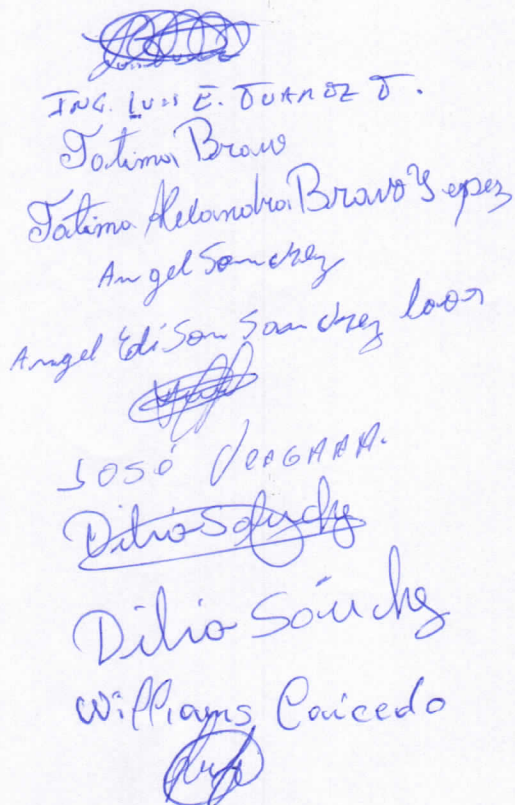 ING. LUIS E. JUAREZ J.
Fatima Bravo
Fatima Alexandra Bravo Yepez
Angel Sanchez
Angel Edison Sanchez loor
JOSÉ VERGARA.
Dilio Sánchez
Dilio Sánchez
Williams Caicedo